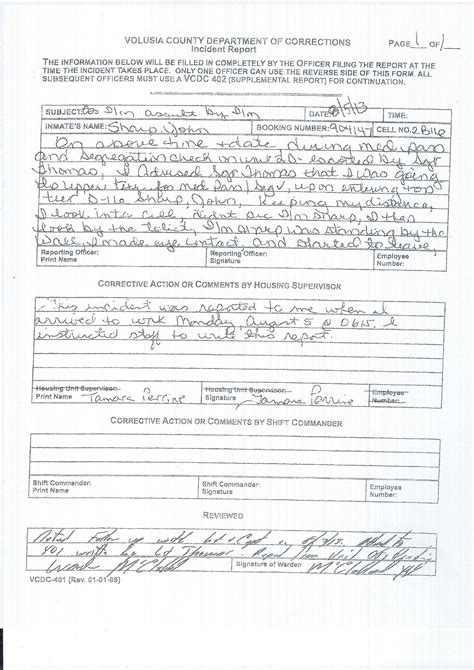 VOLUSIA COUNTY DEPARTMENT OF CORRECTIONS
Incident Report
PAGE 1 OF 1
THE INFORMATION BELOW WILL BE FILLED IN COMPLETELY BY THE OFFICER FILING THE REPORT AT THE
TIME THE INCIDENT TAKES PLACE. ONLY ONE OFFICER CAN USE THE REVERSE SIDE OF THIS FORM. ALL
SUBSEQUENT OFFICERS MUST USE A VCDC 402 (SUPPLEMENTAL REPORT) FOR CONTINUATION.
SUBJECT: I/m by I/m DATE: 8/5/13 TIME:
INMATE'S NAME: Sharp, John BOOKING NUMBER: CELL NO. 2B116
On above time + date, during med pass
and Segregation check in unit escorted by Sgt
Thomas, I Advised Sgt Thomas that I was going
to upper tier for med pass / upon entering top
tier D-116 Sharp, John, Keeping my distance,
I look into cell, didnt see I/m Sharp, I then
look by the toliet, I/m Sharp was standing by the
wall, I made eye contact, and started to leave,
Reporting Officer:
Print Name
Reporting Officer:
Signature
Employee
Number:
CORRECTIVE ACTION OR COMMENTS BY HOUSING SUPERVISOR
This incident was reported to me when I
arrived to work Monday, August 5 @ 0615. I
instructed staff to write this report.
Housing Unit Supervisor:
Print Name Tamara Perrine
Housing Unit Supervisor:
Signature Tamara Perrine
Employee
Number:
CORRECTIVE ACTION OR COMMENTS BY SHIFT COMMANDER
Shift Commander:
Print Name
Shift Commander:
Signature
Employee
Number:
REVIEWED
Noted Follow up with Lt + Capt
401 by Lt Thomas
Warden
Signature of Warden
VCDC-401 (Rev. 01-01-99)